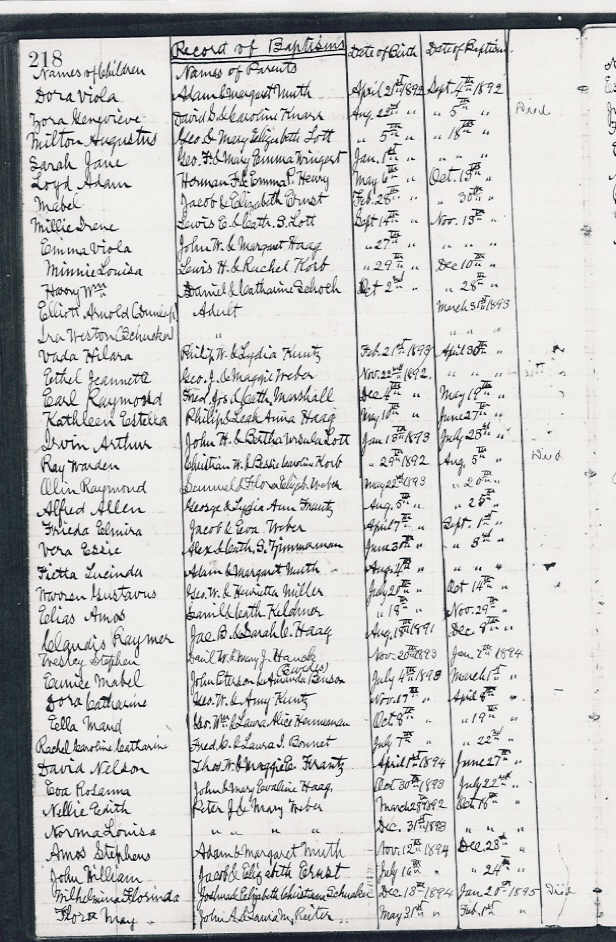 218 Record of Baptisms Date of Birth Date of Baptism
Names of Children Names of Parents
Dora Viola Adam & Margaret Muth April 21st 1892 Sept 4th 1892
Zora Genevieve David D. & Caroline Knarr Aug. 22nd " " 5th "
Milton Augustus Geo. D. Mary Elizabeth Lott " 5th " " 18th "
Sarah Jane Geo. F. & Mary Emma Wingert Jan. 1st " " " "
Loyd Adam Herman F. & Emma P. Henry May 6th " Oct. 13th "
Mabel Jacob & Elizabeth Ernst Feb. 28th " " 30th "
Millie Irene Lewis E. & Cath. S. Lott Sept 14th " Nov. 13th "
Emma Viola John W. & Margaret Haag " 27th " " " "
Minnie Louisa Lewis H. & Rachel Korb " 29th " Dec 10th "
Harry Wm Daniel & Catharine Schoch Oct 2nd " " 28th "
Elliott Arnold Adult March 31st 1893
" " " "
Vada Hilara Philip W. & Lydia Kuntz Feb. 21st 1893 April 30th "
Ethel Jeannette Geo. J. & Maggie Weber Nov. 22nd 1892
Earl Raymond Fred. Jos. & Cath. Marshall Dec 4th " May 19th "
Kathleen Estella Philip & Leah Anna Haag May 10th " June 27th "
Irvin Arthur John H. & Bertha Ursula Lott Jan 13th 1893 July 23rd "
Ray Warden Christian W. & Bessie Caroline Korb " 29th 1892 Aug. 5th " Died
Olin Raymond Samuel & Flora Elizab. Weber May 22nd 1893 " 20th "
Alfred Allen George & Lydia Ann Frantz Aug. 5th " " 25th "
Frieda Elmira Jacob & Eva Weber April 7th " Sept. 1st "
Vera Essie Alex & Cath. S. Zimmerman June 30th " " 3rd "
Fietta Lucinda Adam & Margaret Muth Aug. " " " "
Warren Gustavus Geo. W. & Henrietta Miller July 20th " Oct 14th "
Elias Amos Daniel & Cath. " 18th " Nov. 29th "
Raymer Jac. B. & Sarah C. Haag Aug. 18th 1891 Dec 8th "
Wesley Stephen David W. & Mary J. Nov. 20th 1893 Jan. 2nd 1894
Eunice Mabel John Peterson & Amanda Benson July 4th 1893 March 1st "
Dora Catharine Geo. W. & Amy Kuntz Nov. 17th " April 8th "
Ella Maud Geo. Wm. & Laura Alice Oct 8th " " 19th "
Rachel Caroline Catharine Fred. C. & Laura J. Bonnet July 7th " " 22nd "
David Nelson Thos. W. & Maggie E. Frantz April 1st 1894 June 27th "
Eva Rosanna John & Mary Evaline Haag Oct 30th 1893 July 22nd "
Nellie Edith Peter J. & Mary Weber March 28th 1892 Oct 18th "
Norma Louisa " " " " Dec. 31st 1893 " " "
Amos Stephens Adam & Margaret Muth Nov. 12th 1894 Dec 23rd "
John William Jacob & Elizabeth Ernst July 16th " " 24th "
Wilhelmina Florinda Joshua & Elizabeth Christiana Schucker Dec 13th 1894 Jan 20th 1895 Died
Flora May John A. & Laura M. Reiter May 31st " Feb. 1st "